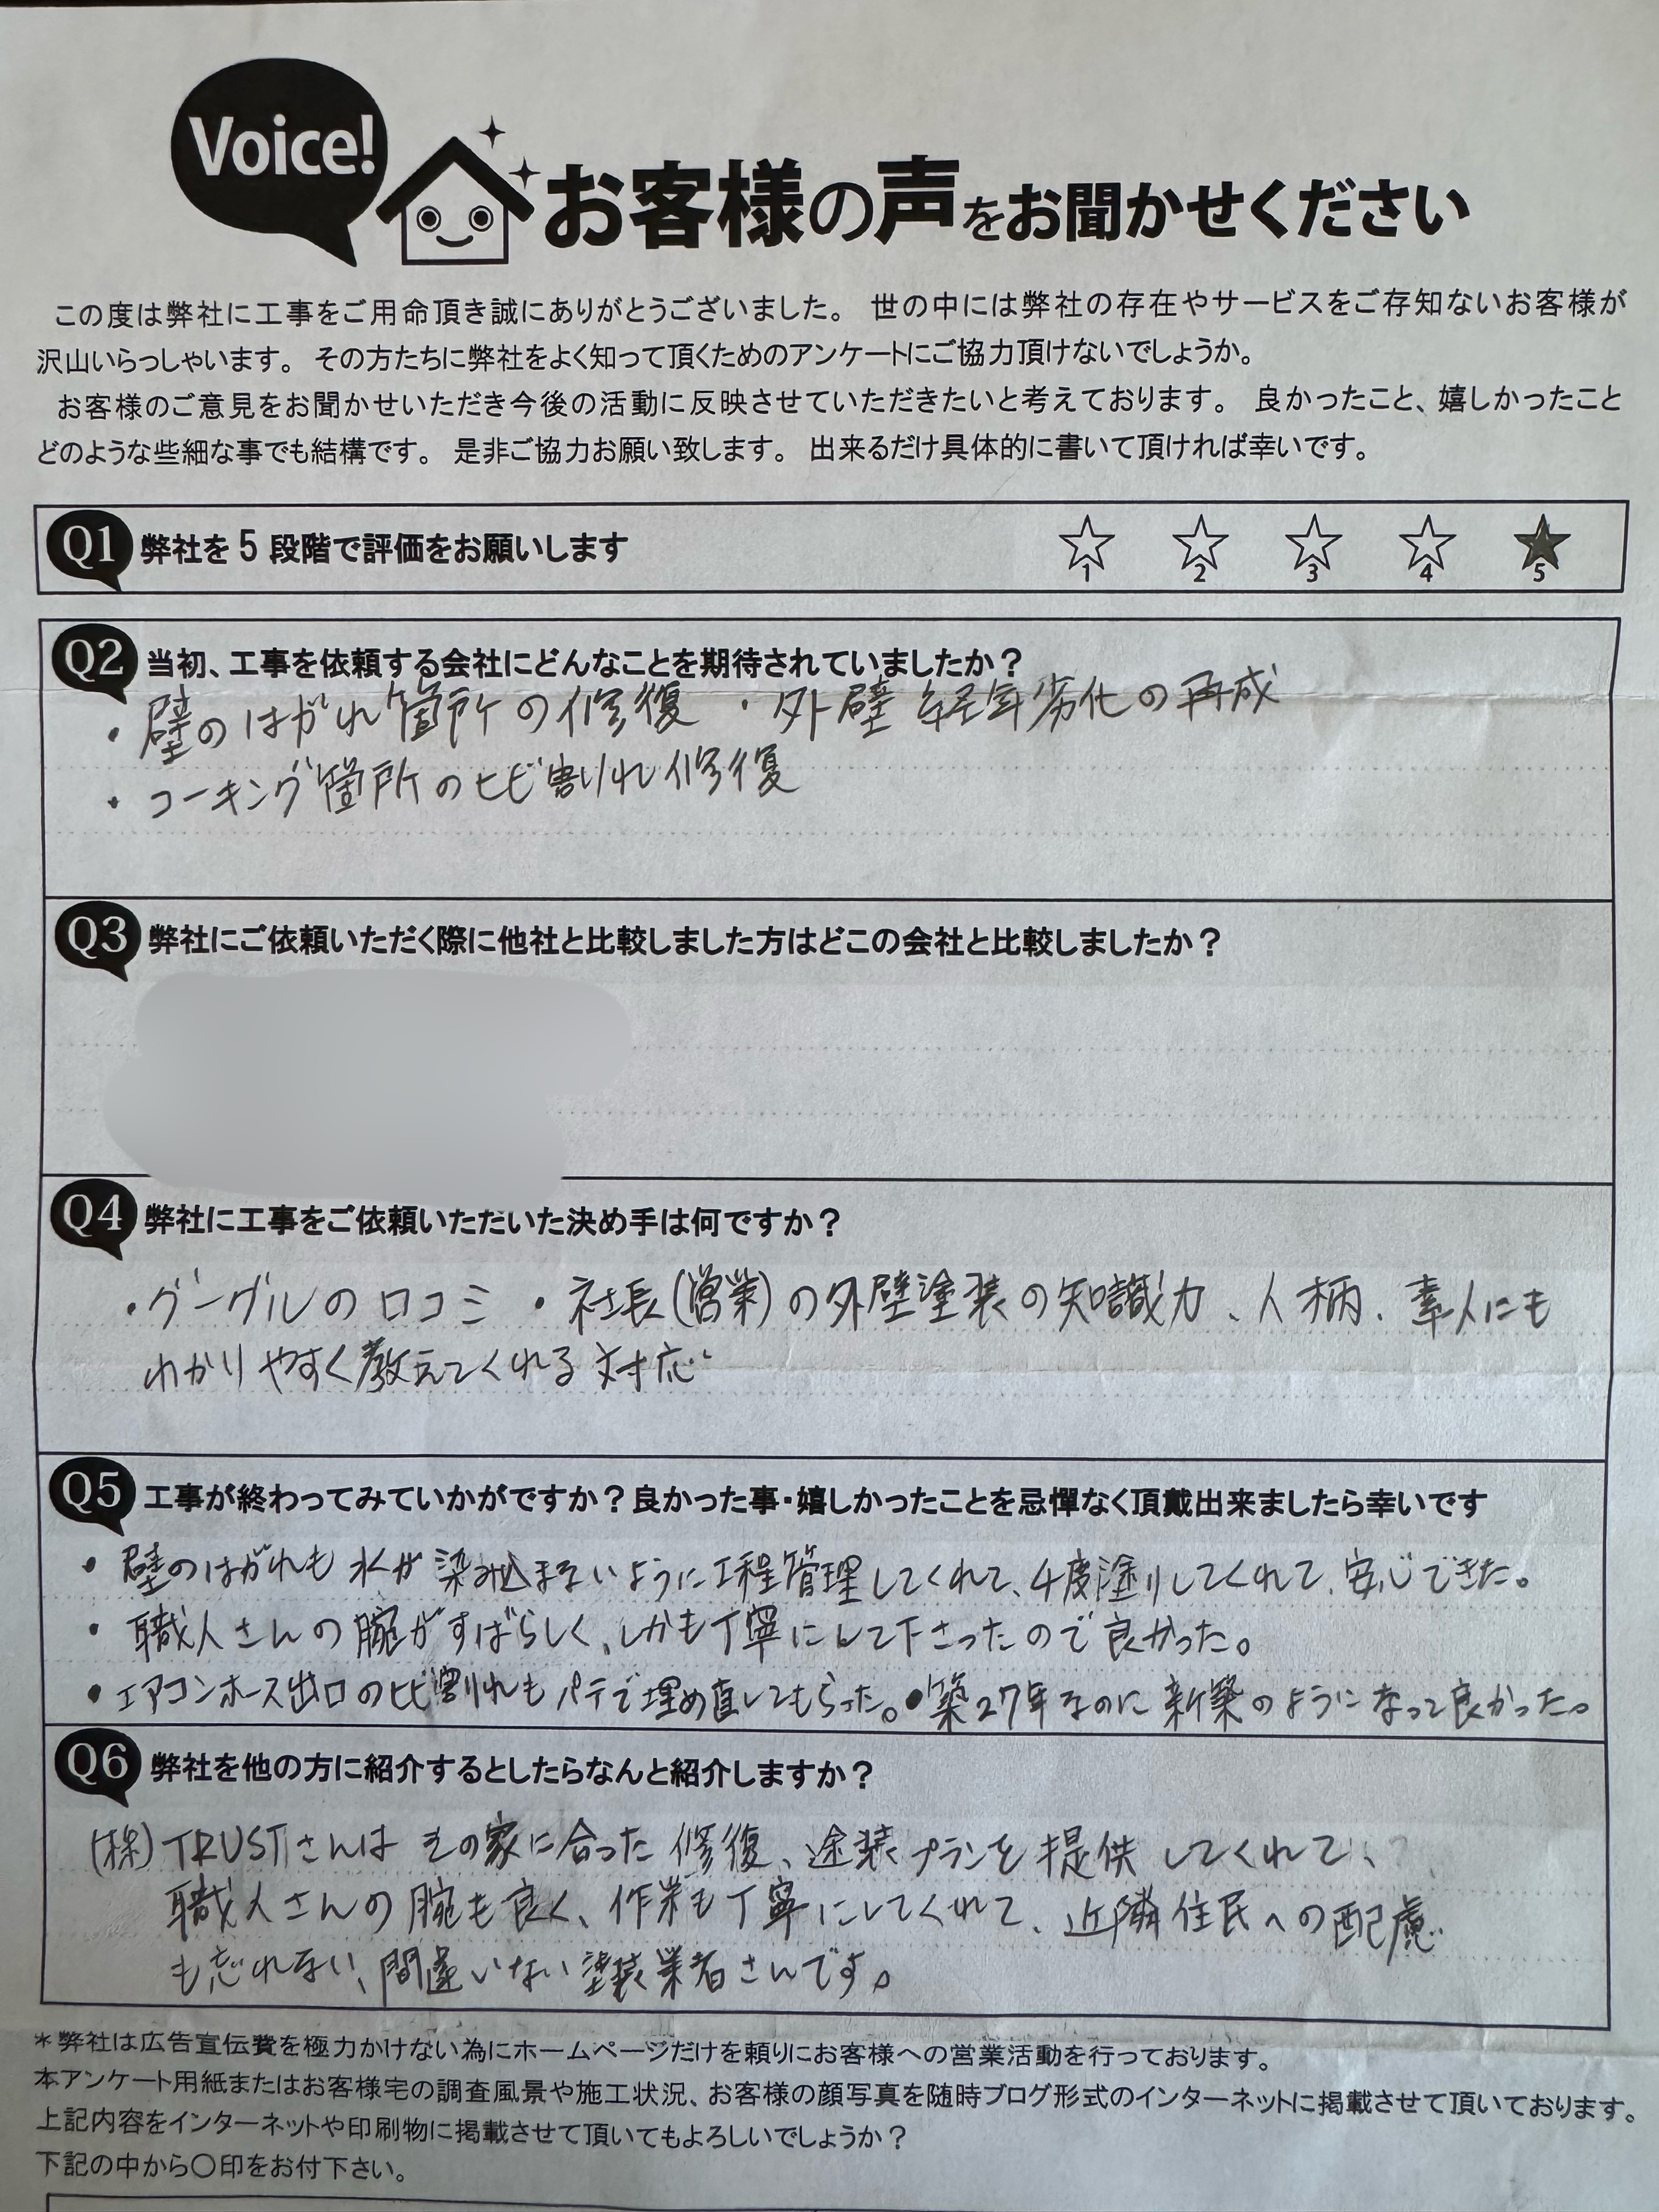 Voice!
お客様の声をお聞かせください
この度は弊社に工事をご用命頂き誠にありがとうございました。 世の中には弊社の存在やサービスをご存知ないお客様が
沢山いらっしゃいます。 その方たちに弊社をよく知って頂くためのアンケートにご協力頂けないでしょうか。
お客様のご意見をお聞かせいただき今後の活動に反映させていただきたいと考えております。 良かったこと、嬉しかったこと
どのような些細な事でも結構です。 是非ご協力お願い致します。 出来るだけ具体的に書いて頂ければ幸いです。
Q1 弊社を5段階で評価をお願いします ☆1 ☆2 ☆3 ☆4 ★5
Q2 当初、工事を依頼する会社にどんなことを期待されていましたか？
・壁のはがれ箇所の修復 ・外壁 経年劣化の再成
・コーキング箇所のヒビ割れ修復
Q3 弊社にご依頼いただく際に他社と比較しました方はどこの会社と比較しましたか？
Q4 弊社に工事をご依頼いただいた決め手は何ですか？
・グーグルの口コミ ・社長(営業)の外壁塗装の知識力、人柄、素人にも
わかりやすく教えてくれる対応
Q5 工事が終わってみていかがですか？良かった事・嬉しかったことを忌憚なく頂戴出来ましたら幸いです
・壁のはがれも水が染み込まないように工程管理してくれて、4度塗りしてくれて、安心できた。
・職人さんの腕がすばらしく、しかも丁寧にして下さったので良かった。
・エアコンホース出口のヒビ割れもパテで埋め直してもらった。●築27年なのに新築のようになって良かった。
Q6 弊社を他の方に紹介するとしたらなんと紹介しますか？
(株)TRUSTさんはその家に合った修復、塗装プランを提供してくれて、
職人さんの腕も良く、作業も丁寧にしてくれて、近隣住民への配慮
も忘れない、間違いない塗装業者さんです。
＊弊社は広告宣伝費を極力かけない為にホームページだけを頼りにお客様への営業活動を行っております。
本アンケート用紙またはお客様宅の調査風景や施工状況、お客様の顔写真を随時ブログ形式のインターネットに掲載させて頂いております。
上記内容をインターネットや印刷物に掲載させて頂いてもよろしいでしょうか？
下記の中から〇印をお付下さい。